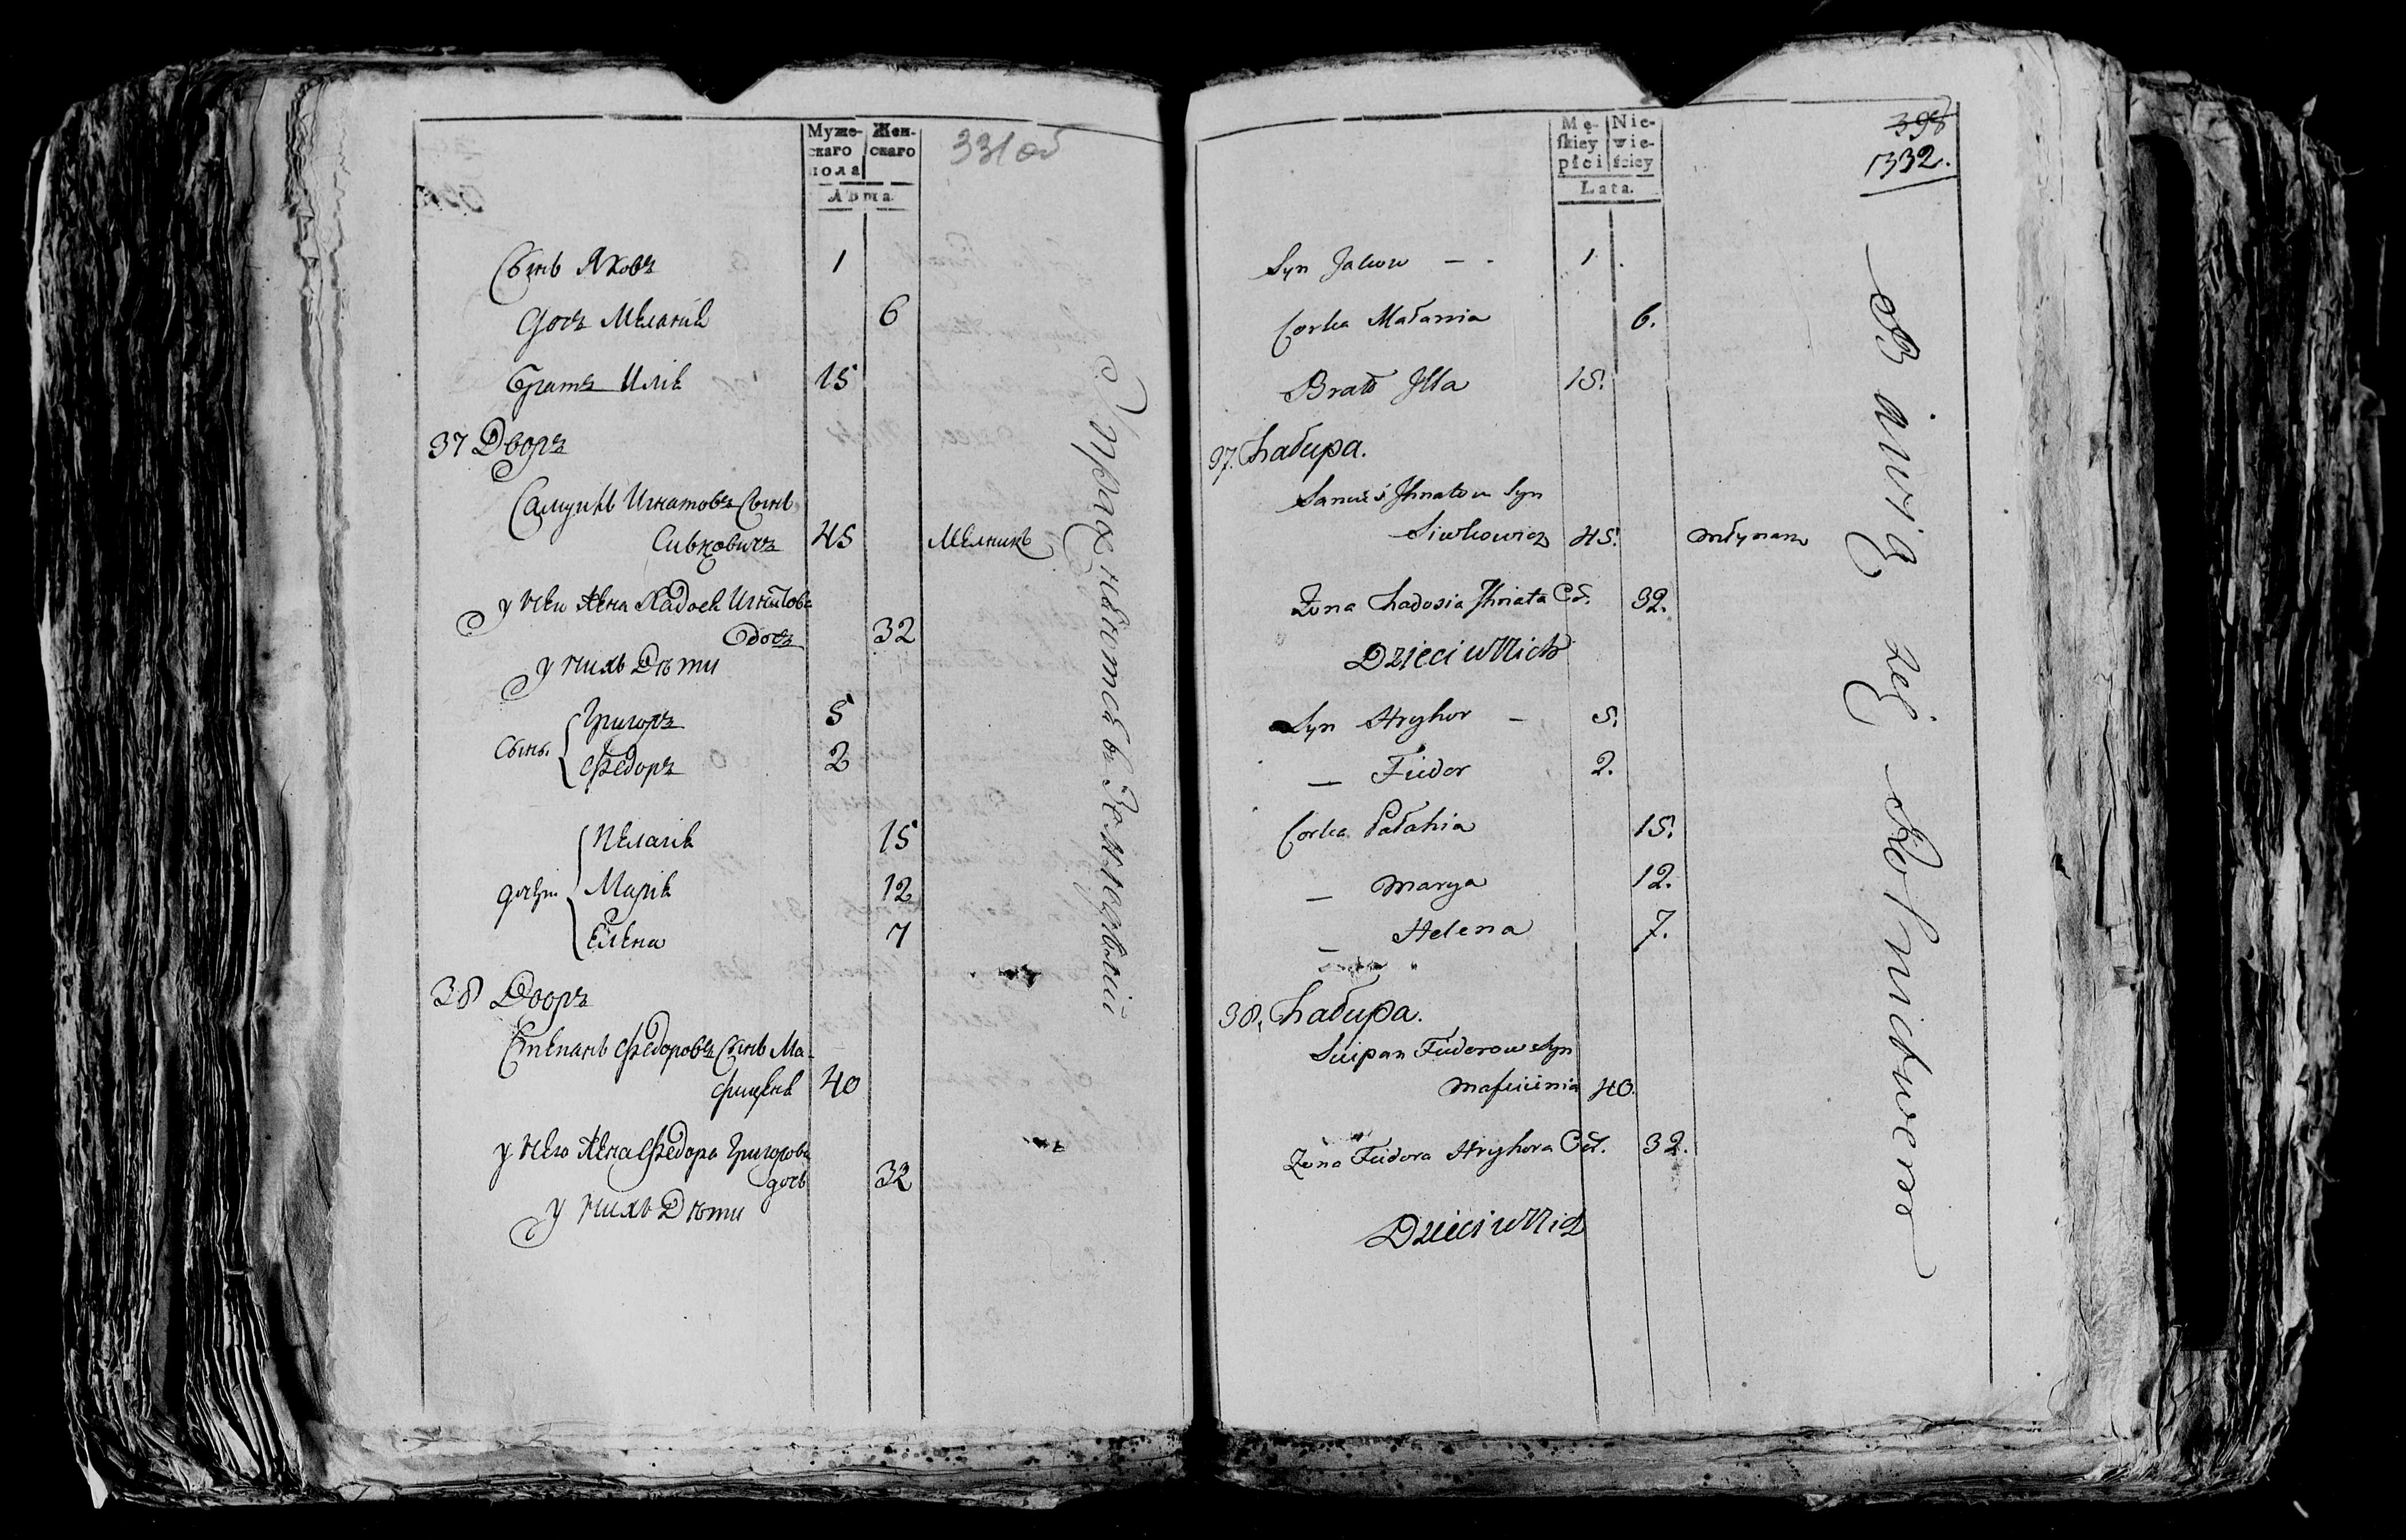 Муже-
скаго
пола
Жен-
скаго
Лѣта.
331 об
Сынъ Яковъ 1
дочь Меланія 6
братъ Илія 15
37 Дворъ
Самуилъ Игнатовъ Сынъ
Сивковичъ 45 Мелникъ
у нево жена Хадосія
дочь 32
у нихъ Дѣти
Сынь. Григоръ 5
Федоръ 2
Пелагія 15
дочери Марія 12
Елена 7
38 Дворъ
Степанъ Федоровъ Сынъ Ма-
40
у него жена Федора Григорова
дочь 32
у нихъ Дѣти
Mę-
skiey
płci
Nie-
wie-
ściey
Lata.
398
332.
Syn Jakow – - 1.
Corka Małania 6.
Brat Illa 15.
37. Chałupa.
Ihnatow Syn
Siwkowicz 45. młynarz
Zona Chadosia Ihnata Cór. 32.
Dzieci w Nich
Syn Hryhor – 5.
– Fiedor 2.
Corka Pałahia 15.
– Marya 12.
– Helena 7.
38. Chałupa.
Sciepan Fiedorow Syn
40.
Zona Fiedora Hryhora Cór. 32.
Dzieci w Nich